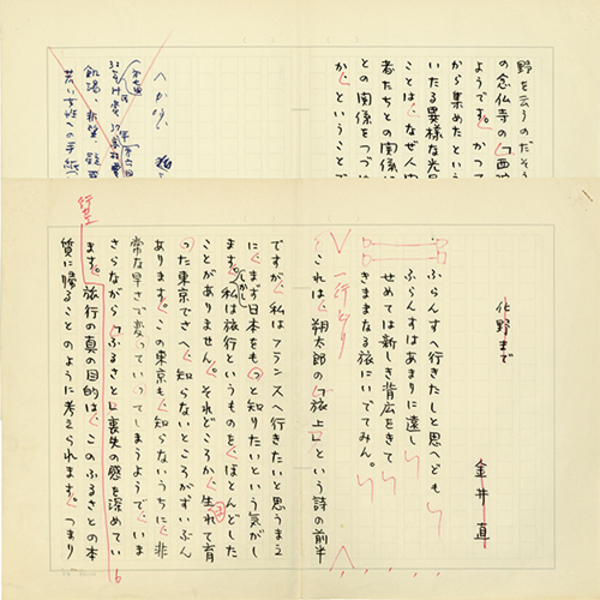 野を云うのだそう
の念仏寺の「西
ようです。かつて
から集めたという
いたる異様な光
ことは、なぜ人
者たちとの関係
との関係をつづ
か、ということで
若い女性への手紙
化野まで
金井 直
ふらんすへ行きたしと思へども
ふらんすはあまりに遠し
せめては新しき背広をきて
きままなる旅にいでてみん。
一行とり
これは、朔太郎の「旅上」という詩の前半
ですが、私はフランスへ行きたいと思うまえ
に、まず日本をもっと知りたいという気がし
ます。しかし私は旅行というものを、ほとんどした
ことがありません。それどころか、生れて育
った東京でさへ、知らないところがずいぶん
あります。この東京も、知らないうちに、非
常な早さで変っていってしまうようで、いま
さらながら「ふるさと」喪失の感を深めてい
ます。旅行の真の目的は、このふるさとの本
質に帰ることのように考えられます。つまり
行空
16